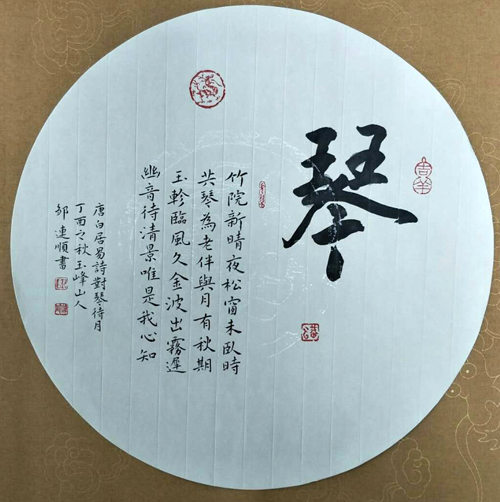 琴
竹院新晴夜松窗未臥時
共琴為老伴與月有秋期
玉軫臨風久金波出霧遲
幽音待清景唯是我心知
唐白居易詩對琴待月
丁酉之秋玉峰山人
邹連順書
吉羊